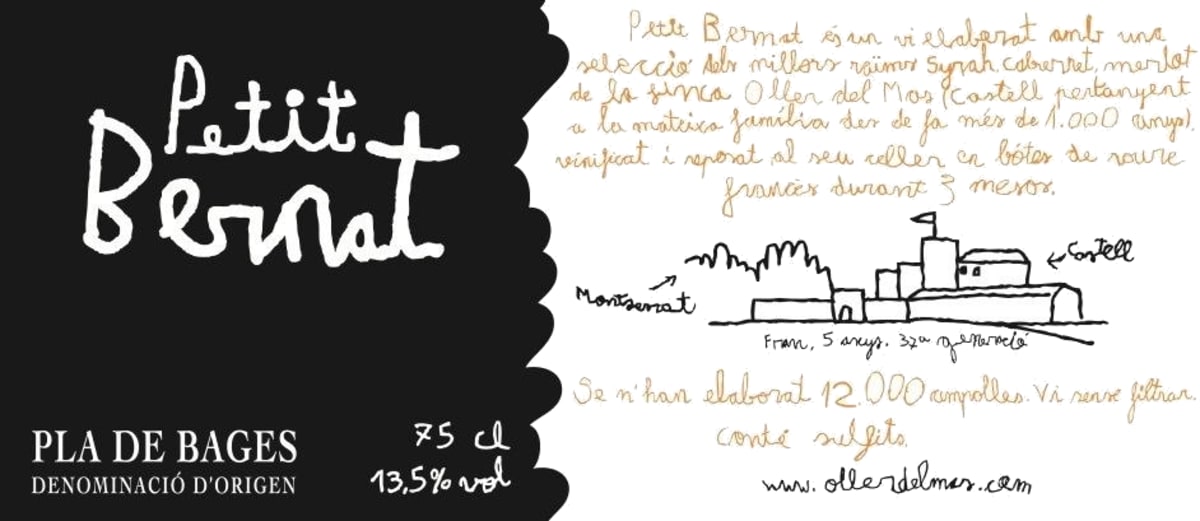 Petit
Bernat
PLA DE BAGES
DENOMINACIÓ D'ORIGEN
75 cl
13,5% vol
Petit Bernat és un vi elaborat amb una
selecció dels millors raïms Syrah, cabernet, merlot
de la finca Oller del Mas (Castell pertanyent
a la mateixa família des de fa més de 1.000 anys),
vinificat i reposat al seu celler en bótes de roure
francès durant 3 mesos.
Montserrat
Castell
Fran, 5 anys. 37a generació
Se n'han elaborat 12.000 ampolles. Vi sense filtrar.
conté sulfits.
www.ollerdelmas.com